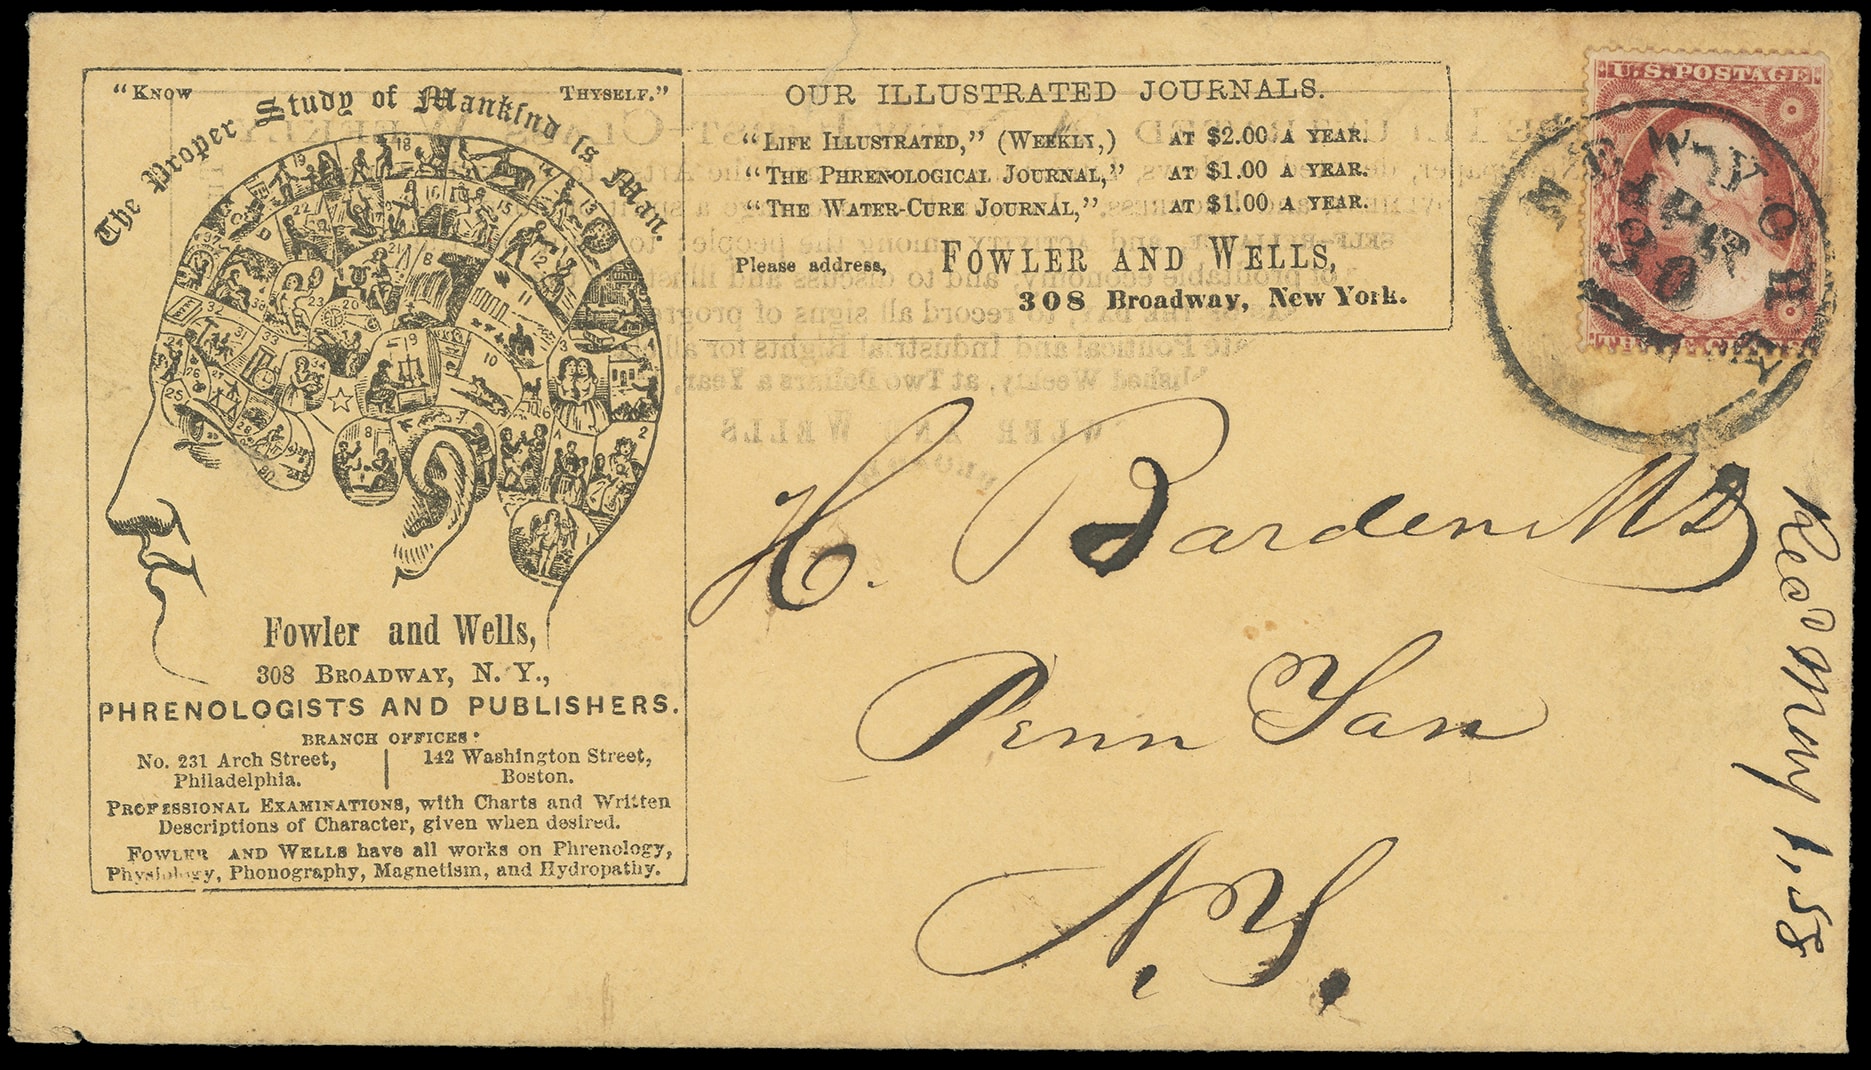 "KNOW THYSELF."
The Proper Study of Mankind is Man.
Fowler and Wells,
308 BROADWAY, N. Y.,
PHRENOLOGISTS AND PUBLISHERS.
BRANCH OFFICES:
No. 231 Arch Street, Philadelphia.
142 Washington Street, Boston.
PROFESSIONAL EXAMINATIONS, with Charts and Written
Descriptions of Character, given when desired.
FOWLER AND WELLS have all works on Phrenology,
Physiology, Phonography, Magnetism, and Hydropathy.
OUR ILLUSTRATED JOURNALS.
"LIFE ILLUSTRATED," (WEEKLY,) AT $2.00 A YEAR.
"THE PHRENOLOGICAL JOURNAL," AT $1.00 A YEAR.
"THE WATER-CURE JOURNAL," AT $1.00 A YEAR.
Please address, FOWLER AND WELLS,
308 Broadway, New York.
U.S. POSTAGE
THREE CENTS
NEW YORK
APR
30
H. Barden MD
Penn Yan
N.Y.
Recd May 1, 58